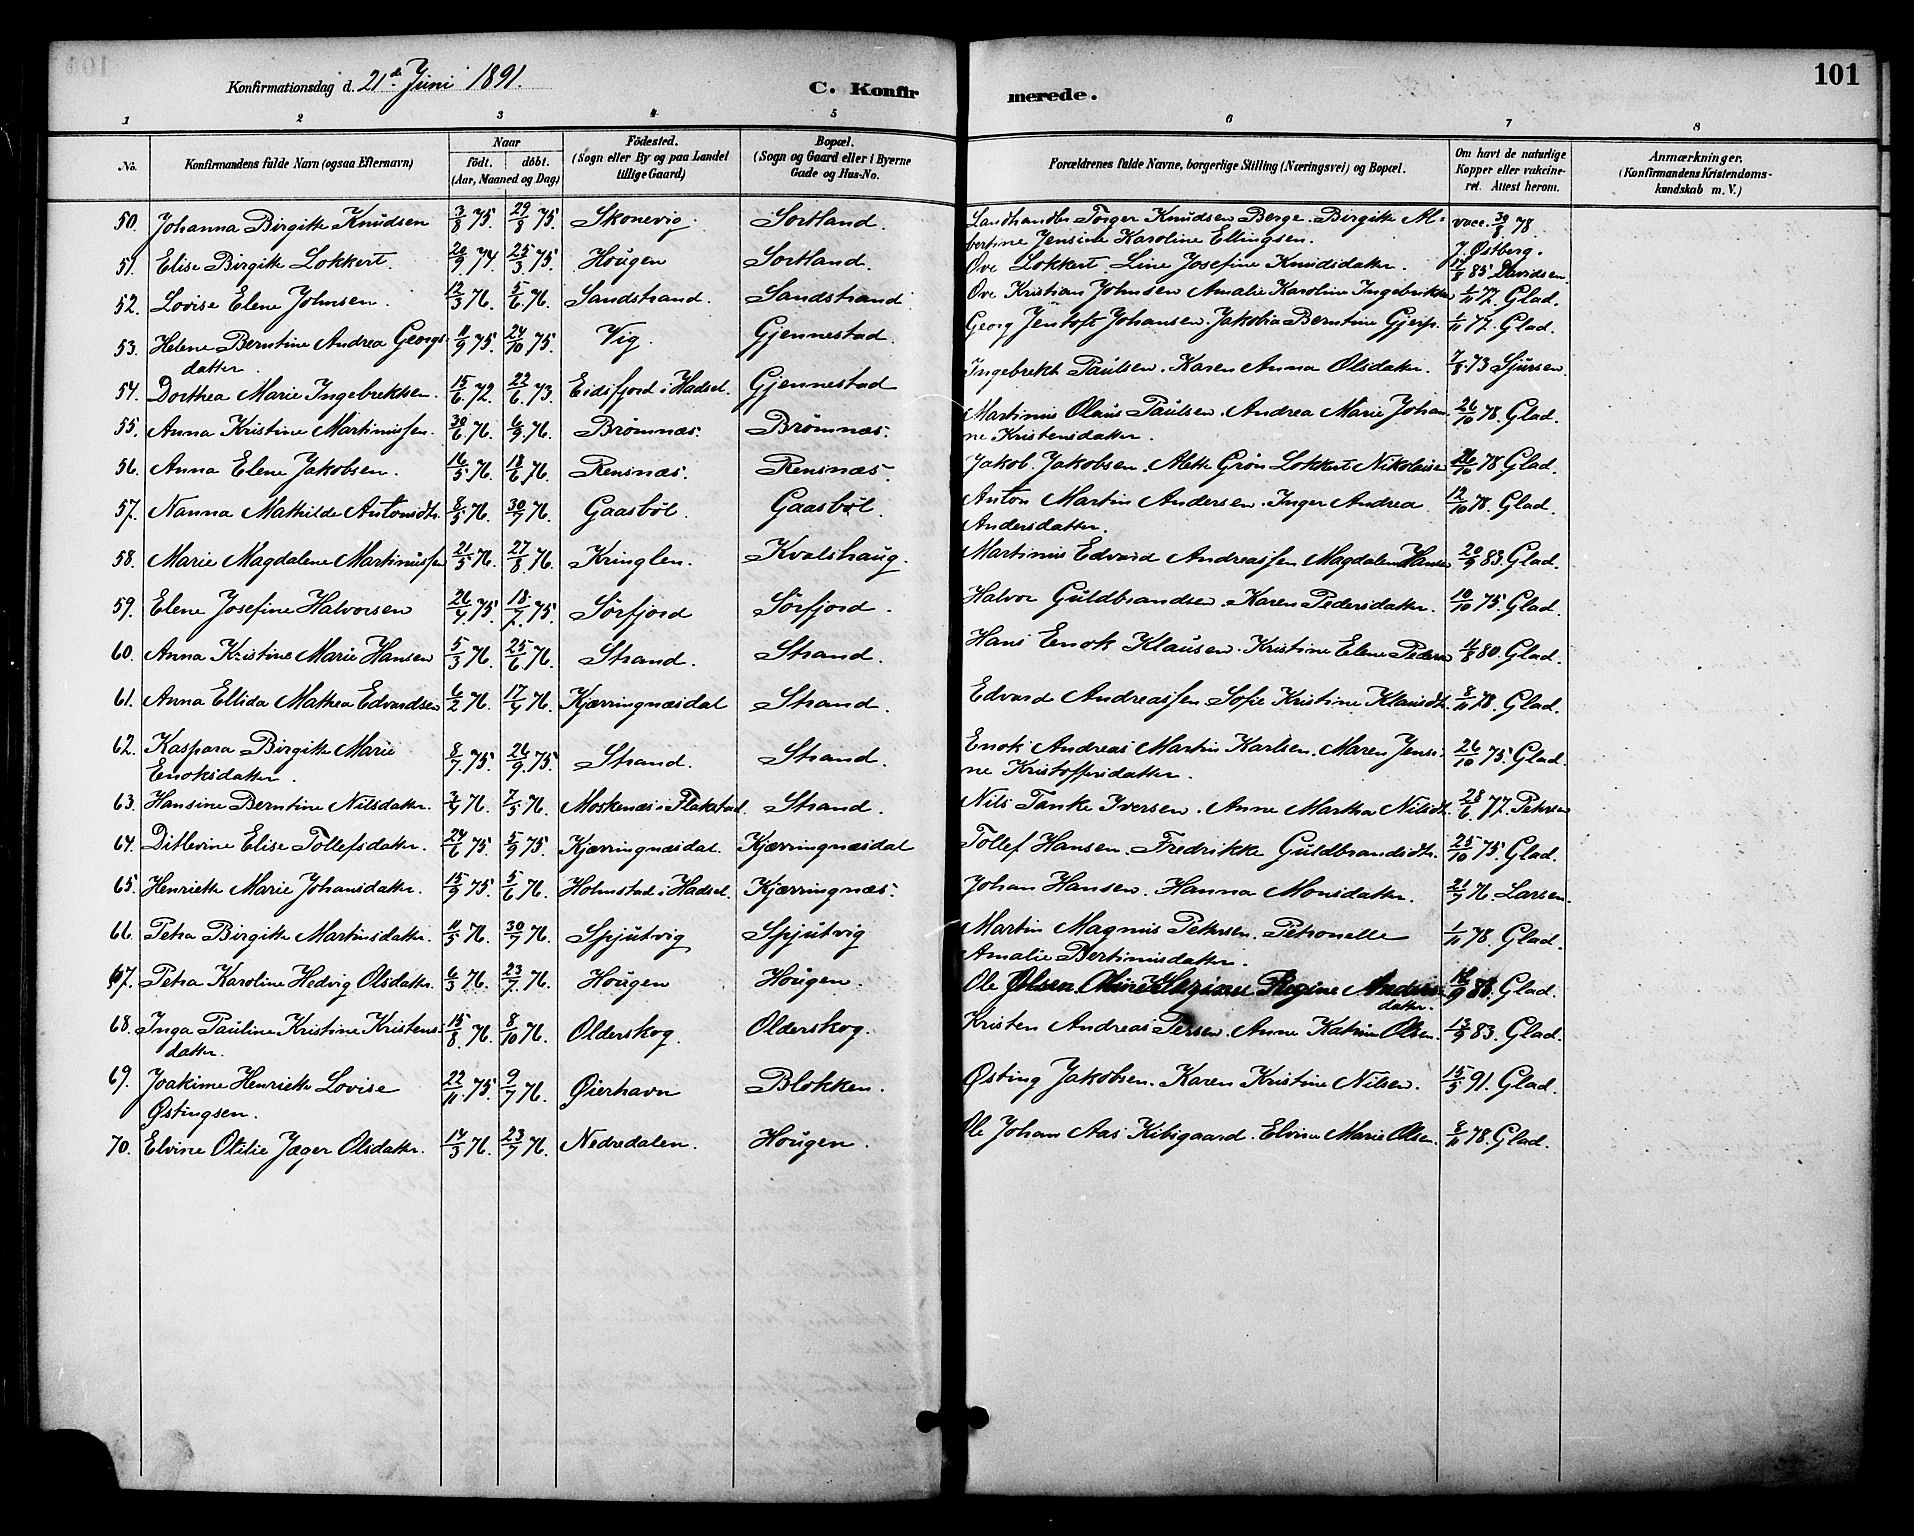 Konfirmationsdag d. 21de Juni 1891.
C. Konfirmerede.
101
1 2 3 4 5 6 7 8
No.
Konfirmandens fulde Navn (ogsaa Efternavn)
Naar
födt. döbt.
(Aar, Maaned og Dag)
Födested.
(Sogn eller By og paa Landet
tillige Gaard)
Bopæl.
(Sogn og Gaard eller i Byerne
Gade og Hus-No.
Forældrenes fulde Navne, borgerlige Stilling (Næringsvei) og Bopæl.
Om havt de naturlige
Kopper eller vakcine-
ret. Attest herom.
Anmærkninger.
(Konfirmandens Kristendoms-
kundskab m. V.)
50. Johanna Birgitte Knudsen 3/8 75. 29/8 75. Skonevig. Sortland. Landhandler Torger Knudsen Berge. Birgitte Al- vacc. 30/8 78.
bertine Jensine Karoline Ellingsen. J. Østberg.
51. Elise Birgitte Lokkert. 20/9 74 25/3 75. Hougen Sortland. Ove Lokkert. Line Josefine Knudsdatter. 17/8 85 Davidsen
52. Lovise Elene Johnsen. 12/3 76. 5/6 76. Sandstrand. Sandstrand Ove Kristian Johnsen Amalie Karoline Ingebriktsen 1/11 77. Glad.
53. Helene Berntine Andrea Georgs- 11/9 75. 24/10 75. Vig. Gjennestad. Georg Jentoft Johansen. Jakobia Berntine Gjerp. 1/11 77. Glad.
datter.
54. Dorthea Marie Ingebrektsen. 15/6 72. 22/6 73. Eidsfjord i Hadsel. Gjennestad Ingebrekt Paulsen. Karen Anna Olsdatter. 7/8 73 Sjursen.
55. Anna Kristine Martinussen. 30/6 76. 6/9 76. Brömnæs. Brömnæs. Martinus Olaus Paulsen. Andrea Marie Johan- 26/10 78. Glad.
ne Kristensdatter.
56. Anna Elene Jakobsen. 16/5 76. 18/6 76. Rensnæs. Rensnæs. Jakob Jakobsen. Alette Grön Lokkert Nikolaisen 26/10 78. Glad.
57. Nanna Mathilde Antonsdtr. 8/5 76. 30/7 76. Gaasböl. Gaasböl. Anton Martin Andersen. Inger Andrea 12/10 78. Glad.
Andersdatter.
58. Marie Magdalene Martinussen 21/5 76. 27/8 76. Kringlen. Kvalshaug. Martinus Edvard Andreassen Magdalena Hansen 20/9 83. Glad.
59. Elene Josefine Halvorsen 26/4 75. 18/7 75. Sörfjord Sörfjord. Halvor Guldbrandsen. Karen Pedersdatter. 10/10 75. Glad.
60. Anna Kristine Marie Hansen 5/3 76. 25/6 76. Strand. Strand. Hans Enok Klausen. Kristine Elene Pedersen 11/8 80. Glad.
61. Anna Ellida Mathea Edvardsen 6/2 76. 17/4 76. Kjærringnæsdal Strand. Edvard Andreassen Sofie Kristine Klausdtr. 8/11 78. Glad.
62. Kaspara Birgitte Marie 8/7 75. 26/9 75. Strand. Strand. Enok Andreas Martin Karlsen. Maren Jensi- 26/10 75. Glad.
Enoksdatter. ne Kristoffersdatter.
63. Hansine Berntine Nilsdatter. 3/4 76. 7/5 76. Moskenæs i Flakstad. Strand. Nils Tanke Iversen. Anne Martha Nilsdtr. 28/6 77. Petersen
64. Ditlevine Elise Tollefsdatter. 24/6 75. 5/9 75. Kjærringnæsdal. Kjærringnæsdal Tollef Hansen. Fredrikke Guldbrandsdtr. 25/10 75. Glad.
65. Henriette Marie Johansdatter. 15/9 75. 5/6 76. Holmstad i Hadsel. Kjærringnæs. Johan Hansen. Hanna Monsdatter. 21/7 76. Larsen.
66. Petra Birgitte Martinsdatter. 11/5 76. 30/7 76. Spjutvig Spjutvig Martin Magnus Petersen. Petronelle 1/11 78. Glad.
Amalie Bertinusdatter.
67. Petra Karoline Hedvig Olsdatter. 6/3 76. 23/7 76. Hougen Hougen. Ole Olsen. Regine Anders- 16/9 88. Glad.
datter.
68. Inga Pauline Kristine Kristens- 15/8 76. 8/10 76. Olderskog. Olderskog. Kristen Andreas Persen. Anne Katrine Olsen. 13/9 83. Glad.
datter.
69. Joakime Henriette Lovise 22/11 75. 9/7 76. Øierhavn Blokken. Østing Jakobsen. Karen Kristine Nilsen. 15/5 91. Glad.
Østingsen.
70. Elvine Otilie Jæger Olsdatter. 14/3 76. 23/7 76. Nedredalen. Hougen. Ole Johan Aas Kibsgaard. Elvine Marie Olsen. 8/11 78. Glad.